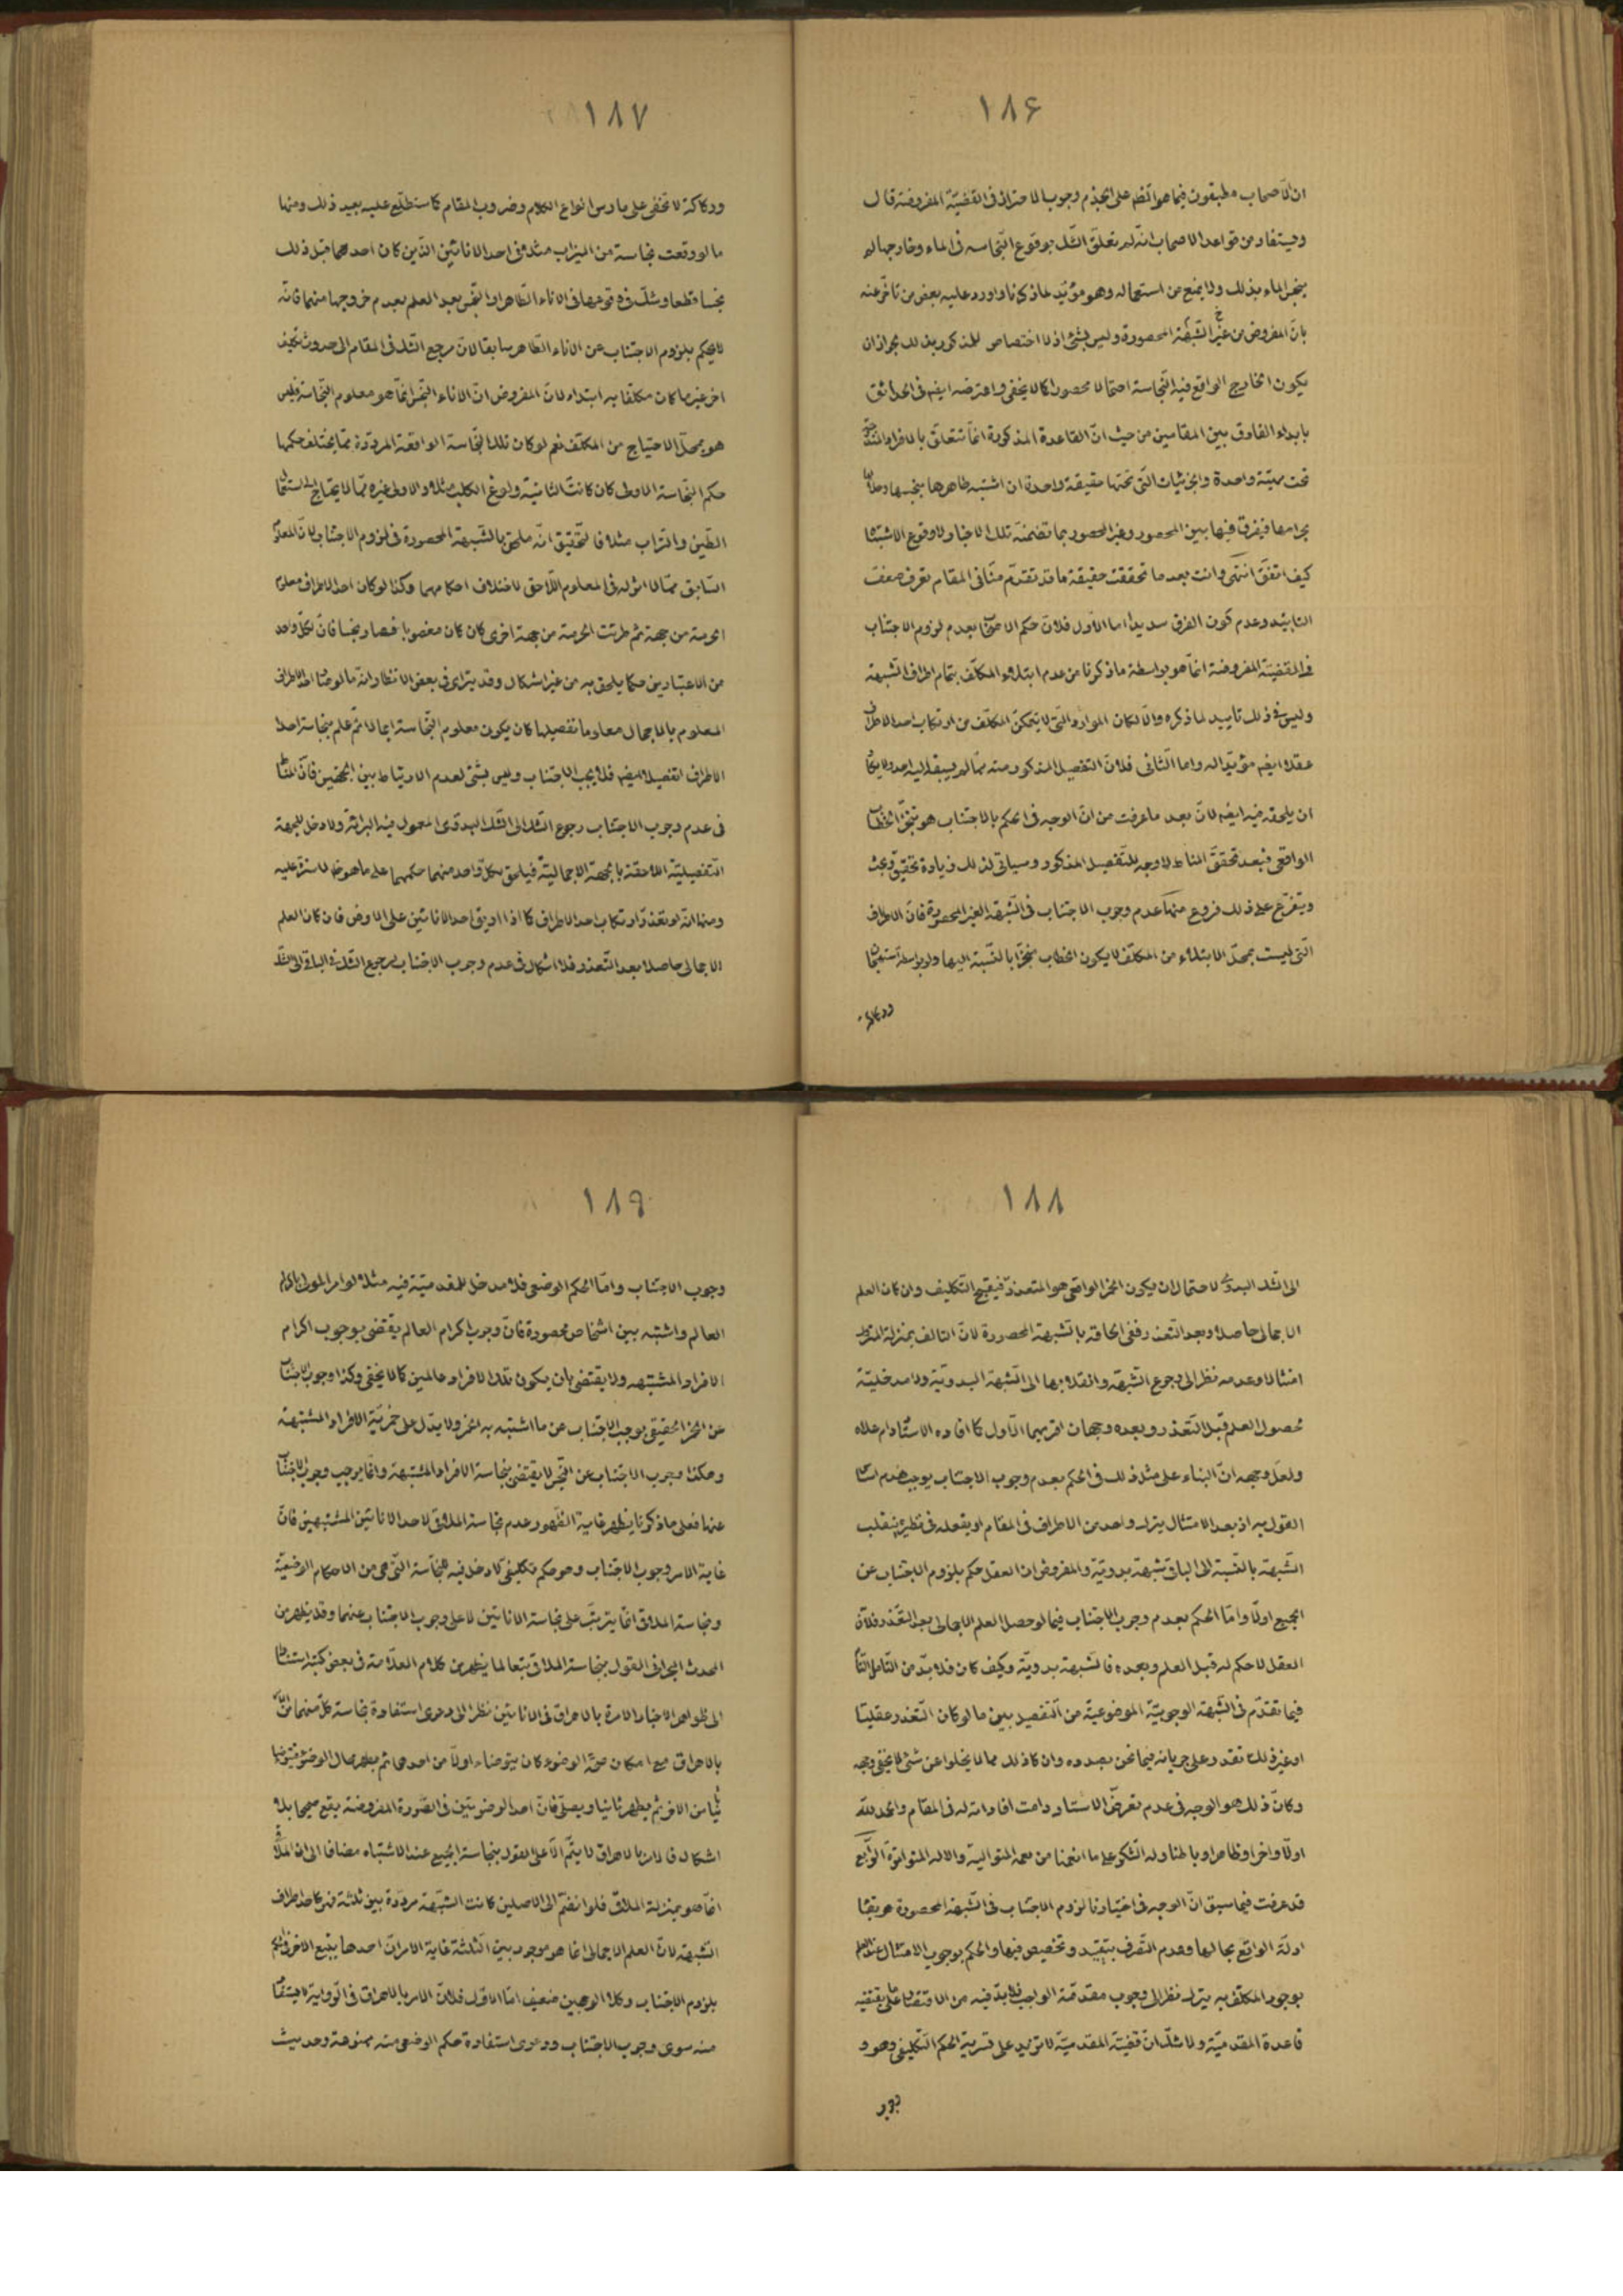 ١٨۶
ان الاصحاب مطبقون فيما هو اظهر على عدم وجوب الاحتراز في القضيّة المفروضة قال
ويستفاد من قواعد الاصحاب انّه لو تعلّق الشّك بوقوع النّجاسة في الماء وخارجها لم
ينجس الماء بذلك ولا يمنع من استعماله وهو مؤيّد لما ذكرنا واورد عليه بعض من تاخّر عنه
بانّ المفروض من غير الشّبهة المحصورة وليس بشئ اذ لا اختصاص للمذكور بذلك لجواز ان
يكون الخارج الواقع فيه النّجاسة احتمالا محصورا كما لا يخفى واعترضه ايضا في الحدائق
بابداء الفارق بين المقامين من حيث انّ القاعدة المذكورة انّما تتعلّق بالافراد المندرجة
تحت مهيّة واحدة والجزئيات التّي تحتها حقيقة واحدة ان اشتبه طاهرها بنجسها وحلالها
بحرامها فيفرق فيها بين المحصور وغير المحصور بما تضمنته تلك الاخبار لا وقوع الاشتباه
كيف اتّفق انتهى وانت بعد ما تحققت حقيقة ما قد تقدّم منّا في المقام تعرف ضعف
التاييد وعدم كون الفرق سديدا اما الاوّل فلانّ حكم الاصحاب بعدم لزوم الاجتناب
في القضيّة المفروضة انّما هو بواسطة ما ذكرنا من عدم ابتلاء المكلّف بتمام اطراف الشّبهة
وليس في ذلك تاييد لما ذكره والّا لكان الموارد التّي لا يتمكّن المكلّف من ارتكاب احد الاطراف
عقلا ايضا مؤيّدا له واما الثّاني فلانّ التفصيل المذكور منه ممّا لم يسبقه اليه احد ولا يكاد
ان يلحقه فيه ايضا لانّ بعد ما عرفت من انّ الوجه في الحكم بالاجتناب هو تنجّز الخطاب
الواقعي فبعد تحقّق المناط لا وجه للتّفصيل المذكور وسياتي لذلك زيادة تحقيق وبحث
ويتفرّع على ذلك فروع منها عدم وجوب الاجتناب في الشّبهة الغير المحصورة فانّ الاطراف
التّي ليست بمحلّ الابتلاء من المكلّف لا يكون الخطاب منجّزا بالنّسبة اليها ولو بواسطة استهجان
وركاكة
١٨٧
وركاكة لا تخفى على مارس انواع الكلام وضروب المقام كما ستطلّع عليه بعيد ذلك ومنها
ما لو وقعت نجاسة من الميزاب مثلا في احد الانائين الّذين كان احدهما قبل ذلك
نجسا قطعا وشكّ في وقوعها في الاناء الطّاهر او النّجس بعد العلم بعدم خروجها منهما فانّه
لا يحكم بلزوم الاجتناب عن الاناء الطّاهر سابقا لانّ مرجع الشّك في المقام الى حدوث تكليف
اخر غير ما كان مكلّفا به ابتداء لانّ المفروض انّ الاناء النّجس انّما هو معلوم النّجاسة فليس
هو بمحلّ الاحتياج من المكلّف نعم لو كان تلك النّجاسة الواقعة المردّدة ممّا يختلف حكمها
حكم النّجاسة الاولى كان كانت الثانيّة ولوغ الكلب مثلا والاولى غيره ممّا لا يحتاج الى استعمال
الطّين والتّراب مثلا فالتّحقيق انّه ملحق بالشّبهة المحصورة في لزوم الاجتناب لانّ المعلوم
السّابق ممّا لا اثر له في المعلوم اللّاحق لاختلاف احكامهما وكذا لو كان احد الاطراف معلوم
الحرمة من جهة ثم طرئت الحرمة من جهة اخرى كان كان مغصوبا فصار نجسا فانّ لكلّ واحد
من الاعتبارين حكما يلحق به من غير اشكال وقد يترائى في بعض الانظار انّه ما لو صار احد الاطراف
المعلوم بالاجمال معلوما تفصيلا كان يكون معلوم النّجاسة اجمالا ثم علم بنجاسة احد
الاطراف تفصيلا ايضا فلا يجب الاجتناب وليس بشئ لعدم الارتباط بين الجهتين فانّ المناط
في عدم وجوب الاجتناب رجوع الشّك الى الشّك البدوي المعمول فيه البرائة ولا دخل للجهة
التّفصيليّة اللّاحقة بالجهة الاجماليّة فيلحق بكلّ واحد منهما حكمهما على ما هو ظ لا سترة عليه
ومنها انّه لو تعذّر ارتكاب احد الاطراف كما اذا اريق احد الانائين على الارض فان كان العلم
الاجمالي حاصلا بعد التّعذر فلا اشكال في عدم وجوب الاجتناب لرجوع الشّك في الباقي الى الشّك
١٨٨
الى الشّك البدوي لاحتمال ان يكون الخمر الواقعي هو المتعذّر فيقبح التّكليف وان كان العلم
الاجمالي حاصلا وبعد التّعذر ففي الحاقه بالشّبهة المحصورة لانّ التالف بمنزلة المترك
امتثالا وعدمه نظرا الى رجوع الشّبهة وانقلابها الى الشّبهة البدويّة ولا مدخليّة
لحصول العلم قبل التّعذر وبعده وجهان اقربهما الاوّل كما افاده الاستاد دام علاه
ولعلّ وجهه انّ البناء على مثل ذلك في الحكم بعدم وجوب الاجتناب يوجب هدم اساس
القول به اذ بعد الامتثال بترك واحد من الاطراف في المقام او بفعله في نظيره ينقلب
الشّبهة بالنّسبة الى الباقي شبهة بدويّة والمفروض انّ العقل حكم بلزوم الاجتناب عن
الجميع اوّلا وامّا الحكم بعدم وجوب الاجتناب فيما لو حصل العلم الاجمالي بعد التّعذر فلانّ
العقل لا حكم له قبل العلم وبعده فالشّبهة بدويّة وكيف كان فلا بدّ من التّامل التّام
فيما تقدّم في الشّبهة الوجوبيّة الموضوعيّة من التّفصيل بين ما لو كان التّعذر عقليّا
او غير ذلك تقدر على جريانه فيما نحن بصدده وان كان ذلك مما لا يخلوا عن شئ لا يخفى وجهه
وكانّ ذلك هو الوجه في عدم تعرض الاستاد دامت افاداته له في المقام والحمد للّه
اوّلا واخرا وظاهرا وباطنا وله الشّكر على ما انعمنا من نعمه المتوالية والائه المتواترة الرّابع
قد عرفت فيما سبق انّ الوجه في اختيارنا لزوم الاجتناب في الشّبهة المحصورة هو بقاء
ادلّة الواقع بحالها وعدم التّصرف بتقييد وتخصيص فيها والحكم بوجوب الامتثال عند العلم
بوجود المكلّف به بترك نظرا الى وجوب مقدّمة الواجب فلا بدّ فيه من الاقتصار على ما يقتضيه
قاعدة المقدميّة ولا شكّ انّ قضيّة المقدميّة لا تزيد على تسرية الحكم التّكليفي وهو
وجوب
١٨٩
وجوب الاجتناب وامّا الحكم الوضعي فلا مدخل للمقدميّة فيه مثلا لو امر المولى باكرام
العالم واشتبه بين اشخاص محصورة فانّ وجوب اكرام العالم يقتضى بوجوب اكرام
الافراد المشتبهه ولا يقتضى بان يكون تلك الافراد عالمين كما لا يخفى وكذا وجوب الاجتناب
عن الخمر الحقيقي يوجب الاجتناب عن ما اشتبه به الخمر ولا يدّل على خمريّة الافراد المشتبهة
وهكذا وجوب الاجتناب عن النّجس لا يقتضى بنجاسة الافراد المشتبهة وانّما يوجب وجوب الاجتناب
عنها فعلى ما ذكرنا يظهر غاية الظّهور عدم نجاسة الملاقي لاحد الانائين المشتبهين فانّ
غاية الامر وجوب الاجتناب وهو حكم تكليفي لا دخل فيه للنّجاسة التّي هي من الاحكام الوضعيّة
ونجاسة الملاقي انّما يترتّب على نجاسة الانائين لا على وجوب الاجتناب عنهما وقد يظهر من
المحدث البحراني القول بنجاسة الملاقي تبعا لما يظهر من كلام العلّامة في بعض كتبه استنادا
الى ظواهر الاخبار الامرة بالاهراق في الانائين نظرا الى دعوى استفادة نجاسة كلّ منهما لانّ
بالاهراق مع امكان صحّة الوضوء كان يتوضاء اولا من احدهما ثم يطهر محال الوضوء فيتوضا
ثانيا من الاخر ثم يطهر ثانيا ويصلّى فانّ احد الوضوئين في الصّورة المفروضة يقع صحيحا بلا
اشكال فالامر بالاهراق لا يتّم الّا على القول بنجاسة الجميع عند الاشتباه مضافا الى انّ الملاقي
انّما هو بمنزلة الملاقى فلو انضّم الى الاصلين كانت الشّبهة مردّدة بين ثلثة فهو كاحد اطراف
الشّبهة لانّ العلم الاجمالي انما هو موجود بين الثلثة غاية الامر انّ احدها يتبع الاخر في الحكم
بلزوم الاجتناب وكلا الوجهين ضعيف امّا الاوّل فلانّ الامر بالاهراق في الرّواية لا يستفاد
منه سوى وجوب الاجتناب ودعوى استفادة حكم الوضعي منه ممنوعة وحديث